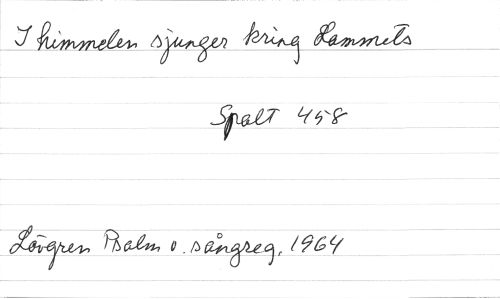 I himmelen sjunger kring Lammets
Spalt 458
Lövgren Psalm o. sångreg, 1964